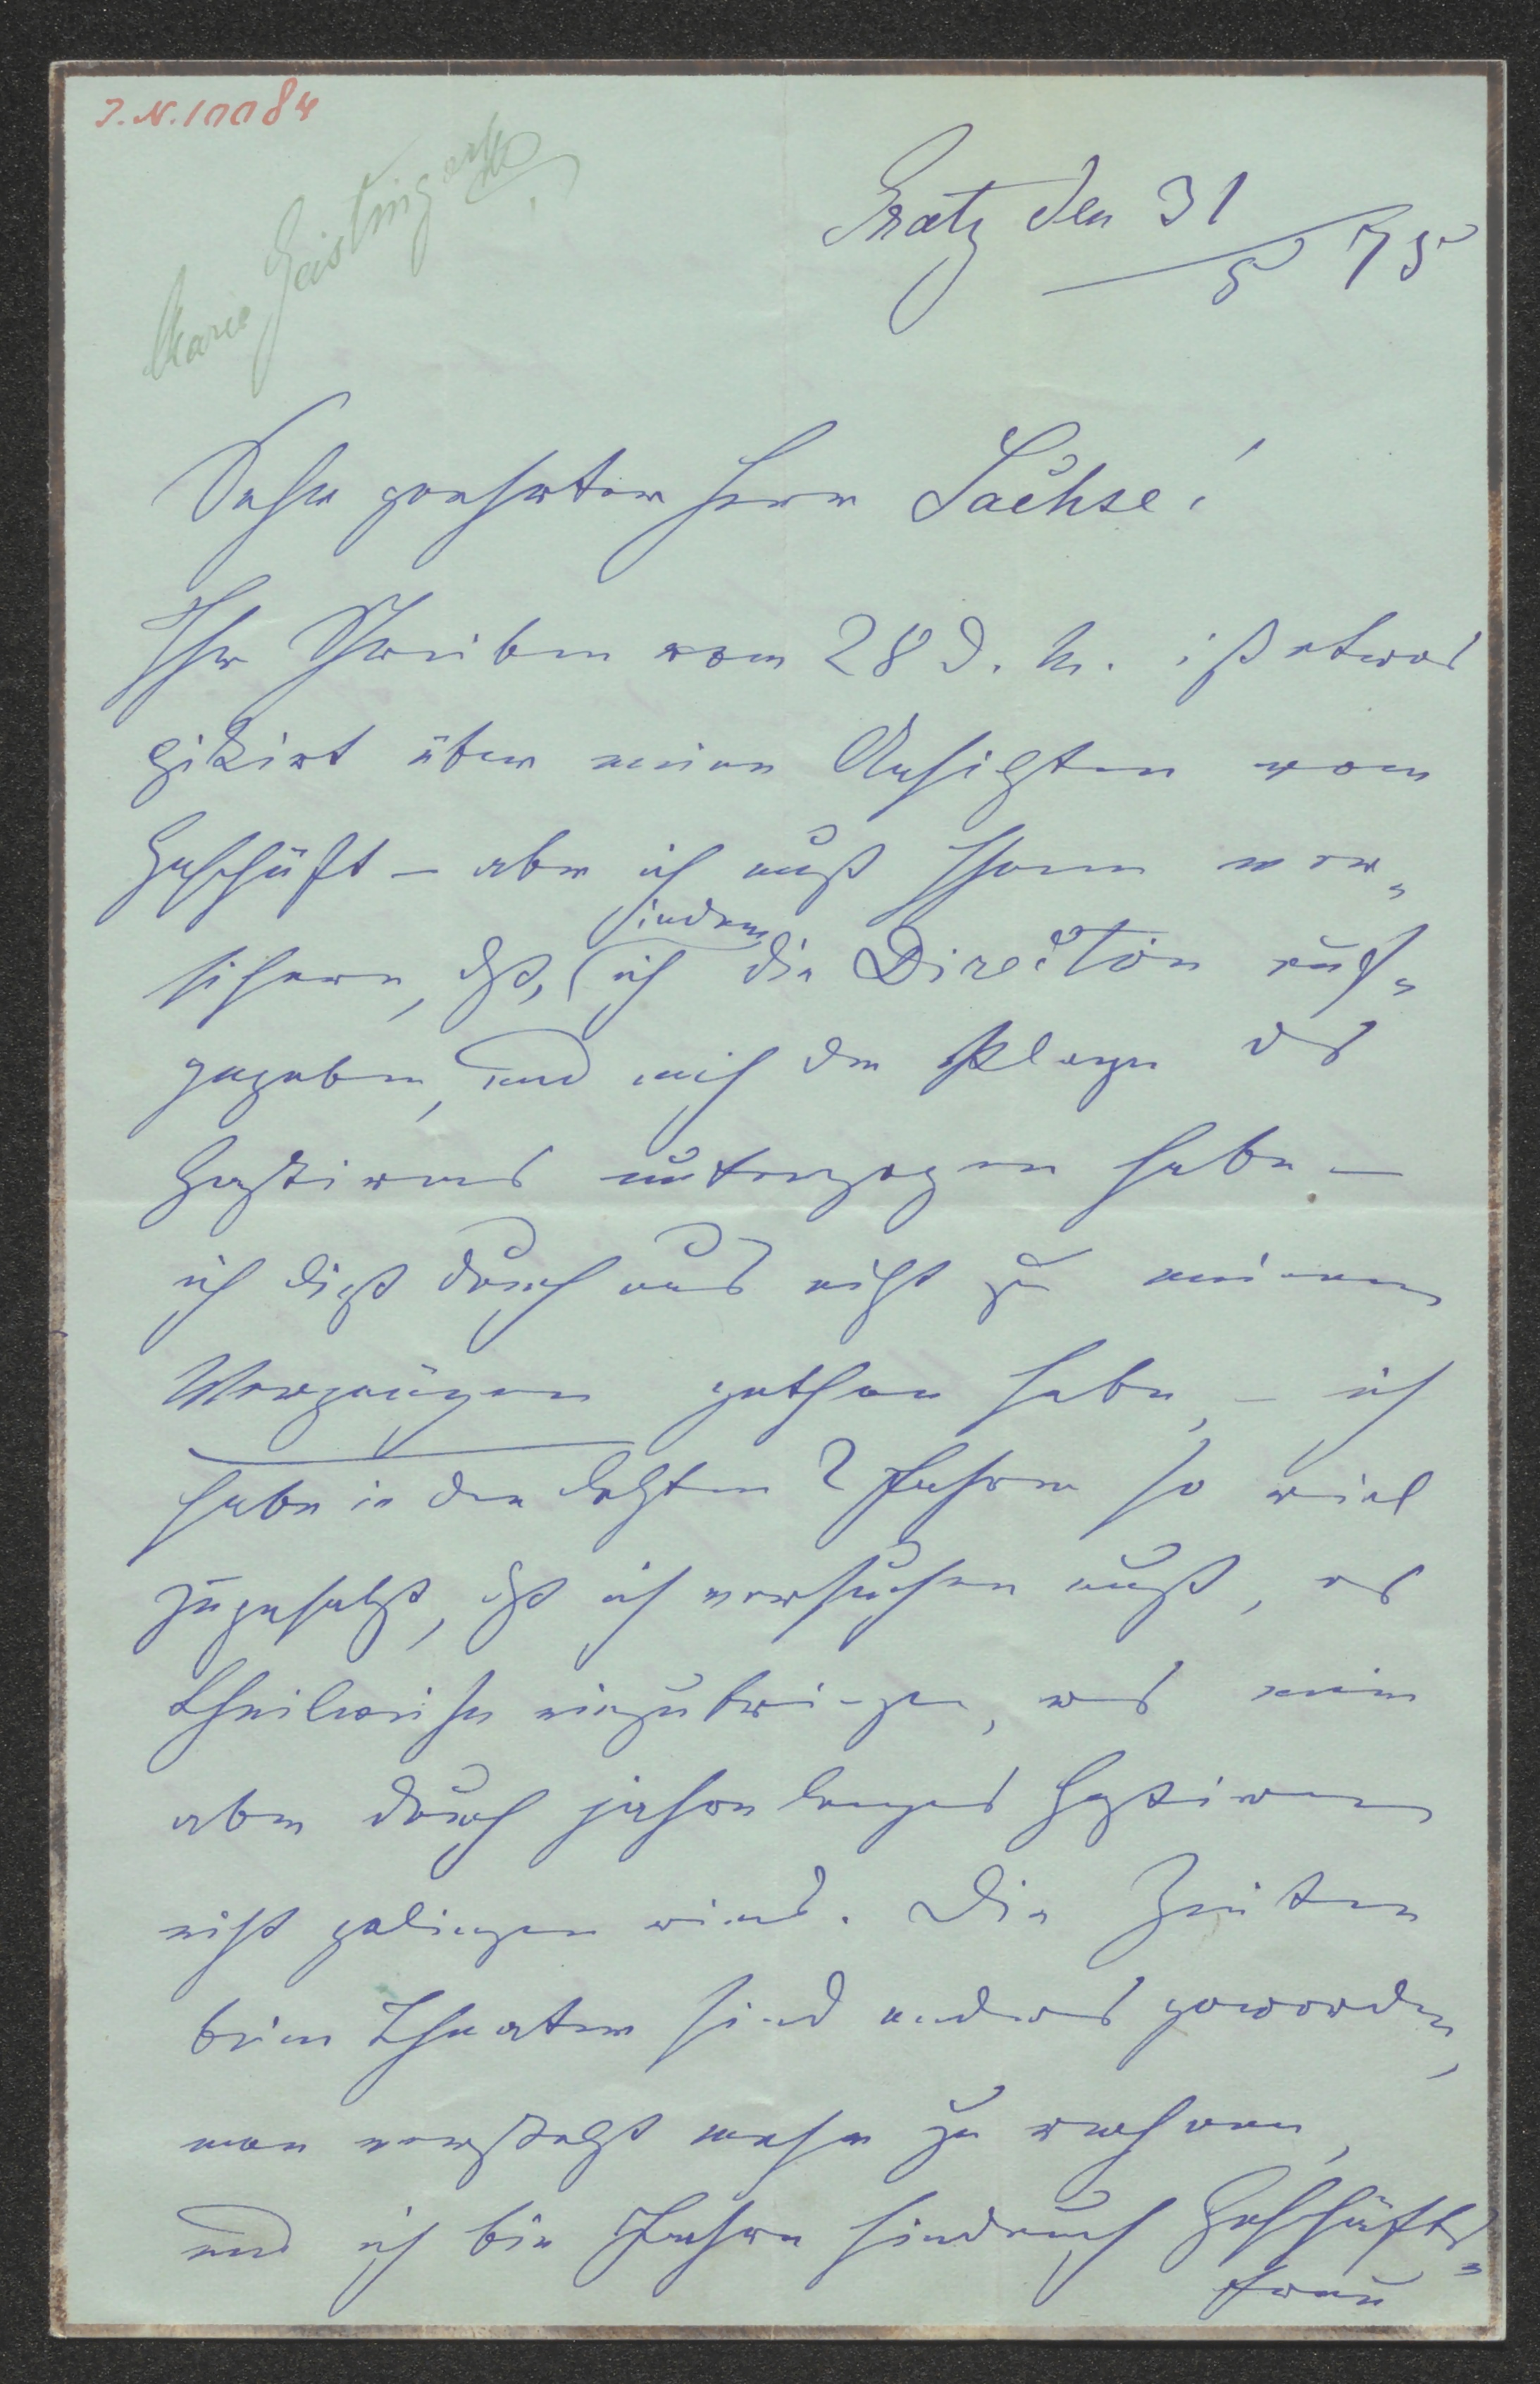 I.N.10084
Marie Geistinger
Gratz den 31
5 75
Sehr geehrter Herr Sachse!
Ihr Schreiben vom 28 d. M. ist etwas
pikirt über meine Ansichten vom
Geschäft – aber ich muß Ihnen ver-
sichern, dß, indem ich die Direction auf-
gegeben, und mich der Plage des
Gastirens unterzogen habe –
ich dieß durchaus nicht zu meinem
Vergnügen gethan habe, – ich
habe in den letzten 2 Jahren so viel
zugesetzt, dß ich versuchen muß, es
theilweise einzubringen, was mir
aber durch jahrelanges Gastiren
nicht gelingen wird. Die Zeiten
beim Theater sind anders geworden,
man versteht mehr zu rechnen,
und ich bin Jahre hindurch Geschäfts-
frau